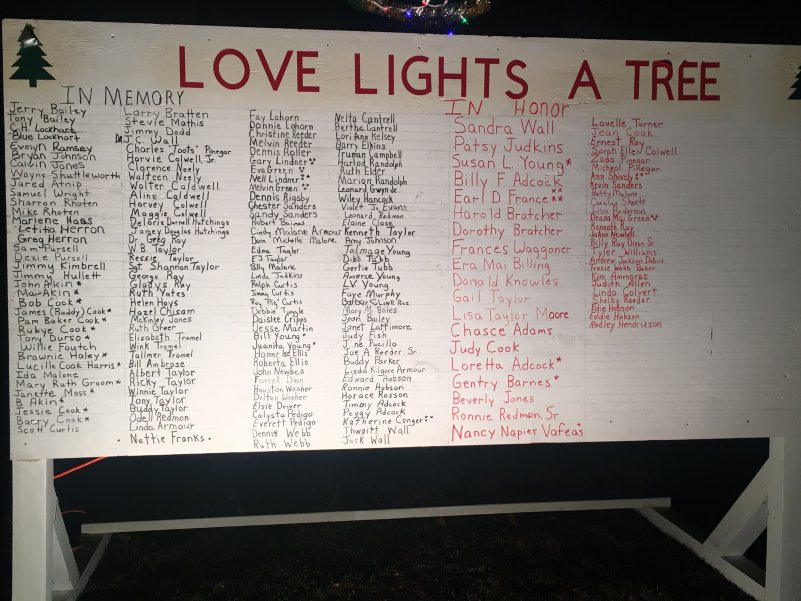 LOVE LIGHTS A TREE
IN MEMORY
Jerry Bailey
Tony Bailey
C.H. Lockhart
Blue Lockhart
Evelyn Ramsey
Bryan Johnson
Caitlin Jones
Wayne Shuttleworth
Jared Atnip
Samuel Wright
Sharron Rhoten
Mike Rhoten
Marlene Haas
Letitia Herron
Greg Herron
Sam Pursell
Dexie Pursell
Jimmy Kimbrell
Jimmy Hullett
John Akin*
Max Akin*
Bob Cook*
James (Buddy) Cook*
Pam Baker Cook*
Rubye Cook*
Tony Durso*
Willie Foutch
Brownie Haley*
Lucille Cook Harris*
Ida Malone
Mary Ruth Groom*
Janette Moss*
B. Akin*
Jessie Cook*
Barry Cook*
Scott Curtis
Larry Bratten
Stevie Mathis
Jimmy Dodd
Dr. J.C. Wall
Charles "Toots" Pinegar
Horvie Colwell Jr.
Clarence Neely
Walteen Neely
Walter Caldwell
Aline Caldwell
Harvey Colwell
Maggie Colwell
Deloris Darnell Hutchings
Janey Douglas Hutchings
Dr. Greg Ray
W.B. Taylor
Kessie Taylor
Sgt. Shannon Taylor
George Ray
Gladys Ray
Ruth Yates
Helen Hays
Hazel Chisam
McKinley Jones
Ruth Greer
Elizabeth Tramel
Wink Tramel
Tallmer Tramel
Bill Ambrose
Albert Taylor
Ricky Taylor
Winnie Taylor
Tony Taylor
Buddy Taylor
Odell Redmon
Linda Armour
Nettie Franks
Fay Lohorn
Donnie Lohorn
Christine Reeder
Melvin Reeder
Dennis Roller
Gary Lindner**
Eva Green**
Nell Lindner**
Melvin Green**
Dennis Rigsby
Chester Sanders
Sandy Sanders
Robert Baines
Cindy Malone Armour
Dana Michelle Malone
Edna Taylor
E J Taylor
Billy Malone
Linda Judkins
Ralph Curtis
Jimmy Curtis
Roy "Pig" Curtis
Debbie Tuggle
Daislee Cripps
Jesse Martin
Bill Young*
Juanita Young*
Homer Lee Ellis
Roberta Ellis
John Newbell
Farrell Dean
Houston Washer
Delton Washer
Elsie Driver
Calysta Pedigo
Everett Pedigo
Dennis Webb
Ruth Webb
Nelta Cantrell
Bertha Cantrell
Lori Ann Kelsey
Harry Elkins
Truman Campbell
Harlod Randolph
Ruth Elder
Marion Randolph
Leonard Gwyn Jr
Wiley Hancock
Violet Jo Evans
Leonard Redmon
Elaine Close
Kenneth Taylor
Amy Johnson
Talmage Young
Dibb Tubb
Gertie Tubb
Americe Young
LV Young
Faye Murphy
Barbara Love Pace
Mary M. Boles
Jean Bailey
Janet Lattimore
Judy Fish
Joe A Reeder Sr
Buddy Parker
Linda Kilgore Armour
Edward Hobson
Ronnie Hobson
Horace Rosson
Jimmy Adcock
Peggy Adcock
Katherine Conger**
Thwaitt Wall
Jack Wall
IN Honor
Sandra Wall
Patsy Judkins
Susan L. Young*
Billy F Adcock
Earl D. France**
Harold Bratcher
Dorothy Bratcher
Frances Waggoner
Era Mai Billing
Donald Knowles
Gail Taylor
Lisa Taylor Moore
Chasce Adams
Judy Cook
Loretta Adcock*
Gentry Barnes*
Beverly Jones
Ronnie Redmon, Sr
Nancy Napier Vafeas*
Lavelle Turner
Jean Cook
Ernest Ray
Sarah Ellen Colwell
Zada Pinegar
Micheal Pinegar
Ann Shively**
Kevin Sanders
Betty Malone
Carolyn Skeets
Lisa Anderson
Deana Mai Green**
Kenneth Ray
JoAnn Newbell
Billy Ray Dixon Sr.
Tyler Williams
Andrew Jackson Dakus
Tracie Webb Baker
Kim Ammons
Judith Allen
Linda Colvert
Shelby Reeder
Edie Hobson
Eddie Hobson
Radley Hendrixson